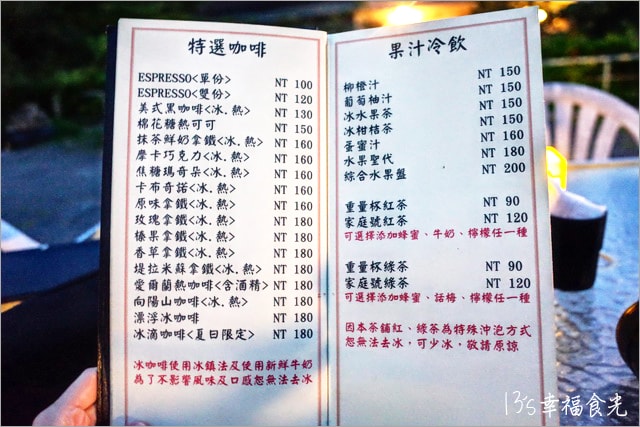 特選咖啡
ESPRESSO<單份> NT 100
ESPRESSO<雙份> NT 120
美式黑咖啡<冰.熱> NT 130
棉花糖熱可可 NT 150
抹茶鮮奶拿鐵<冰.熱> NT 160
摩卡巧克力<冰.熱> NT 160
焦糖瑪奇朵<冰.熱> NT 160
卡布奇諾<冰.熱> NT 160
原味拿鐵<冰.熱> NT 160
玫瑰拿鐵<冰.熱> NT 180
榛果拿鐵<冰.熱> NT 180
香草拿鐵<冰.熱> NT 180
堤拉米蘇拿鐵<冰.熱> NT 180
愛爾蘭熱咖啡<含酒精> NT 180
向陽山咖啡<冰.熱> NT 180
漂浮冰咖啡 NT 180
冰滴咖啡<夏日限定> NT 180
冰咖啡使用冰鎮法及使用新鮮牛奶
為了不影響風味及口感恕無法去冰
果汁冷飲
柳橙汁 NT 150
葡萄柚汁 NT 150
冰水果茶 NT 150
冰柑桔茶 NT 150
蛋蜜汁 NT 160
水果聖代 NT 180
綜合水果盤 NT 200
重量杯紅茶 NT 90
家庭號紅茶 NT 120
可選擇添加蜂蜜、牛奶、檸檬任一種
重量杯綠茶 NT 90
家庭號綠茶 NT 120
可選擇添加蜂蜜、話梅、檸檬任一種
因本茶舖紅、綠茶為特殊沖泡方式
恕無法去冰，可少冰，敬請原諒
13's幸福食光